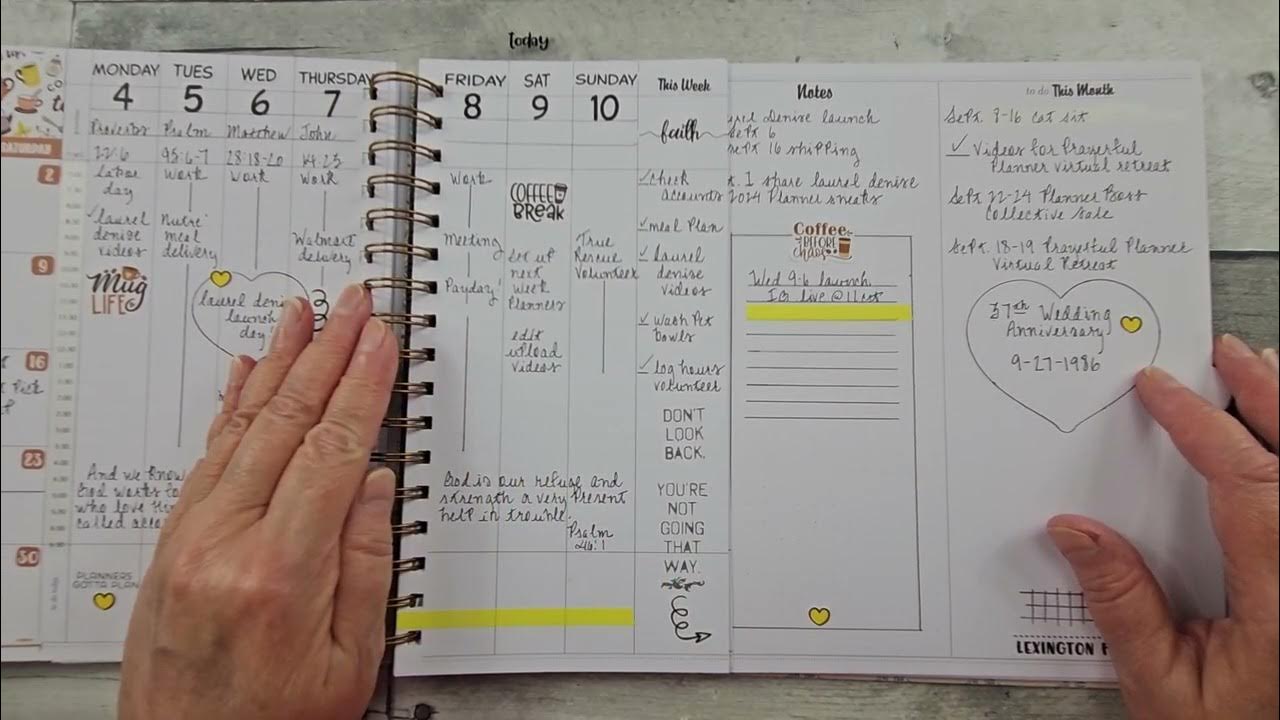 today
MONDAY
4
Proverbs
22:6
Labor
day
✓ laurel
denise
videos
Mug
LIFE
TUES
5
Psalm
95:6-7
Work
Nutre
meal
delivery
WED
6
Matthew
28:18-20
Work
laurel
launch
day
THURSDAY
7
John
14:23
Work
Walmart
delivery
And we know
God works
who love
called
PLANNERS
GOTTA PLAN
SATURDAY
2
9
16
Pick
23
30
FRIDAY
8
Work
Meeting
Payday!
SAT
9
COFFEE
BREAK
set up
next
week
Planners
edit
upload
videos
SUNDAY
10
True
Rescue
Volunteer
God is our refuge and
strength a very Present
help in trouble.
Psalm
46:1
This Week
faith
✓ check
accounts
✓ meal Plan
✓ laurel
denise
videos
✓ wash Pet
bowls
✓ log hours
volunteer
DON'T
LOOK
BACK.
YOU'RE
NOT
GOING
THAT
WAY.
Notes
Denise launch
Sept 6
Sept 16 shipping
1 share laurel denise
2024 Planner sneaks
Coffee
BEFORE
chaos
Wed 9:6 launch
IG live @ 11
to do This Month
Sept. 7-16 cat sit
✓ Videos for Prayerful
Planner virtual retreat
Sept 22-24 Planner Boss
Collective sale
Sept. 18-19 Prayerful Planner
Virtual Retreat
37th Wedding
Anniversary
9-27-1986
LEXINGTON